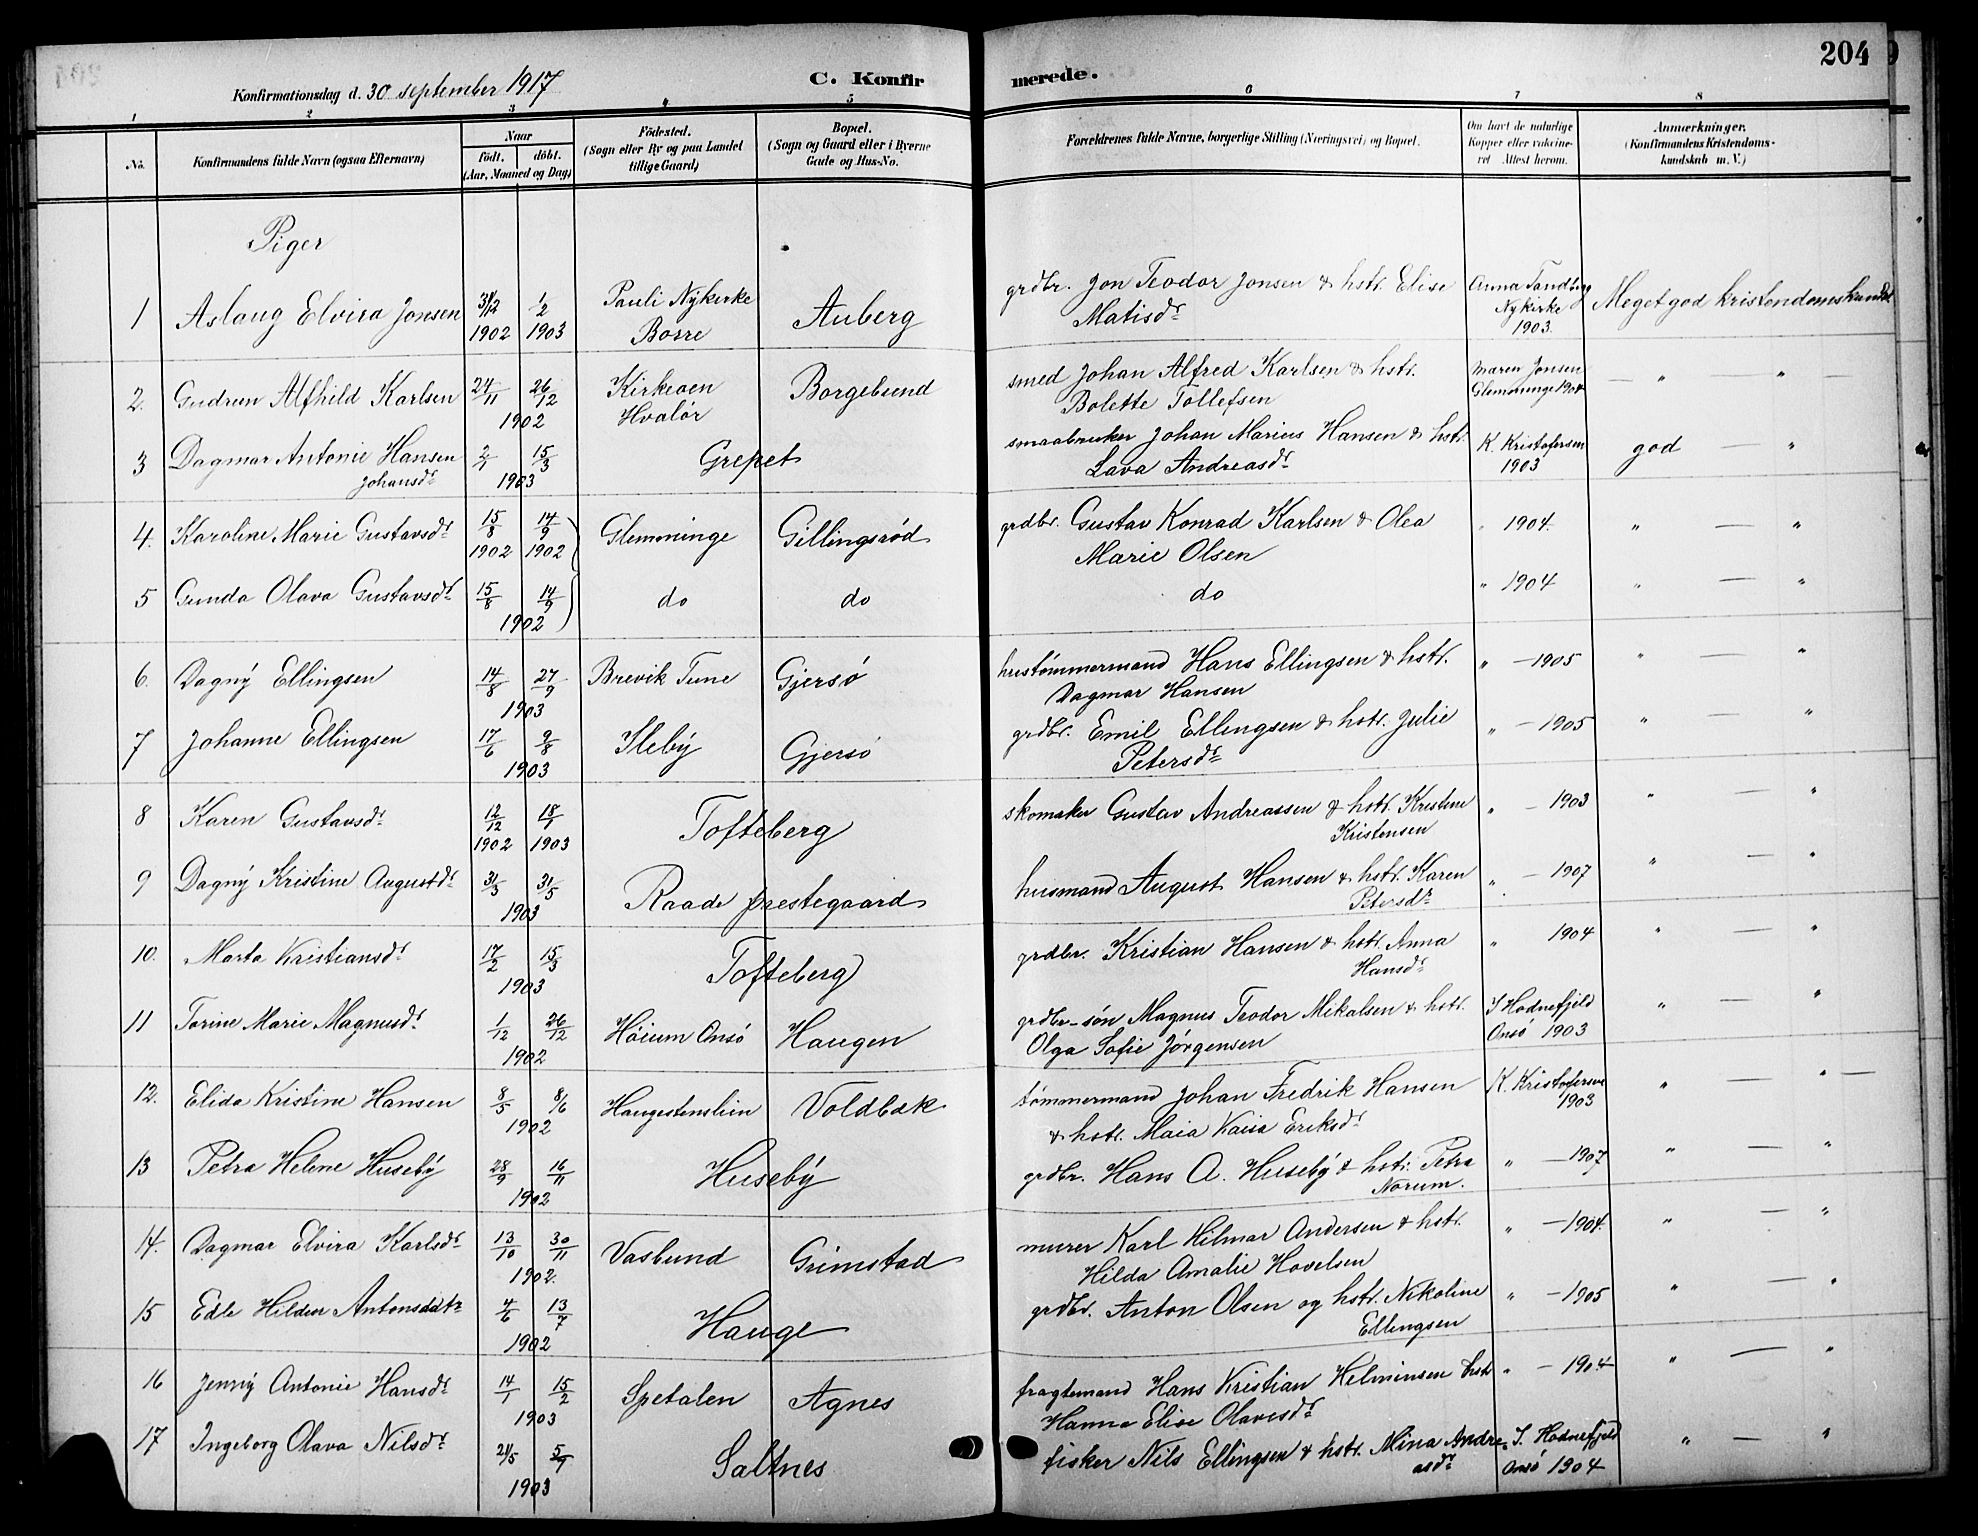 204
Konfirmationsdag d. 30 september 1917 C. Konfir merede.
1 2 3 4 5 6 7 8
No. Konfirmandens fulde Navn (ogsaa Efternavn) Naar födt, döbt. (Aar, Maaned og Dag) Födested. (Sogn eller By og paa Landet tillige Gaard) Bopæl. (Sogn og Gaard eller i Byerne Gade og Hus-No. Forældrenes fulde Navne, borgerlige Stilling (Næringsvei) og Bopæl. Om havt de naturlige Kopper eller vakcineret. Attest herom. Anmærkninger. (Konfirmandens Kristendomskundskab m. V.)
Piger
1 Aslaug Elvira Jonsen 31/12 1902 1/2 1903 Pauli Nykirke Borre Auberg grdbr. Jon Teodor Jonsen & hstr. Elise Matisdr Anna Tandberg Nykirke 1903. Meget god kristendomskundsk
2. Gudrun Alfhild Karlsen 24/11 26/12 1902 Kirkeøen Hvalør Borgebund smed Johan Alfred Karlsen & hstr. Bolette Tollefsen Maren Jonsen Glemminge 1904 — " — "
3 Dagmar Antonie Hansen Johansdr 2/1 15/3 1903 Grepet smaabruker Johan Marius Hansen & hstr. Lava Andreasdr K. Kristofersen 1903 god — "
4. Karoline Marie Gustavsdr 15/8 1902 14/9 1902 Glemminge Gillingsrød grdbr. Gustav Konrad Karlsen & Olea Marie Olsen " 1904. " — "
5 Gunda Olava Gustavsdr 15/8 14/9 1902 do do do " 1904 " — "
6. Dagny Ellingsen 14/8 27/9 1903 Brevik Tune Gjersø hustømmermand Hans Ellingsen & hstr. Dagmar Hansen " — 1905 " — "
7 Johanne Ellingsen 17/6 9/8 1903 Ileby Gjersø grdbr. Emil Ellingsen & hstr. Julie Petersdr " — 1905 " — "
8 Karen Gustavsdr 12/12 1902 18/1 1903 Tofteberg skomaker Gustav Andreassen & hstr. Kristine Kristensen " — 1903 " — "
9 Dagny Kristine Augustdr 31/3 31/5 1903 Raade prestegaard husmand August Hansen & hstr. Karen Petersdr " — 1907 " — "
10. Marta Kristiansdr 17/2 15/3 1903 Tofteberg grdbr. Kristian Hansen & hstr. Anna Hansdr " 1904 " — "
11 Torine Marie Magnusdr 1/12 26/12 1902 Høium Onsø Haugen grdbr-søn Magnus Teodor Mikalsen & hstr. Olga Sofie Jørgensen I Hodnefjeld Onsø 1903 " — "
12. Elida Kristine Hansen 8/5 8/6 1902 Haugestenslien Voldbæk tømmermand Johan Fredrik Hansen & hstr. Maia Kaisa Eriksdr K. Kristofersen 1903 " — " —
13 Petra Helene Huseby 28/9 16/11 1902 Huseby grdbr. Hans A. Huseby & hstr. Petra Norum. " — 1907 " — "
14. Dagmar Elvira Karlsdr 13/10 30/11 1902. Vasbund Grimstad murer Karl Hilmar Andersen & hstr. Hilda Amalie Hovelsen " — 1904. " — "
15 Edle Hildur Antonsdatr 4/6 13/7 1902 Hauge grdbr. Anton Olsen og hstr. Nikoline Ellingsen " — 1905 " — "
16 Jenny Antonie Hansdr 14/1 15/2 1903 Spetalen Agnes fragtemand Hans Kristian Helminsen hstr Hanna Elise Olavesdr " — 1904 " — "
17 Ingeborg Olava Nilsdr 21/5 5/7 1903 Saltnes fisker Nils Ellingsen & hstr. Mina Andreasdr I. Hodnefjeld Onsø 1904 " — "